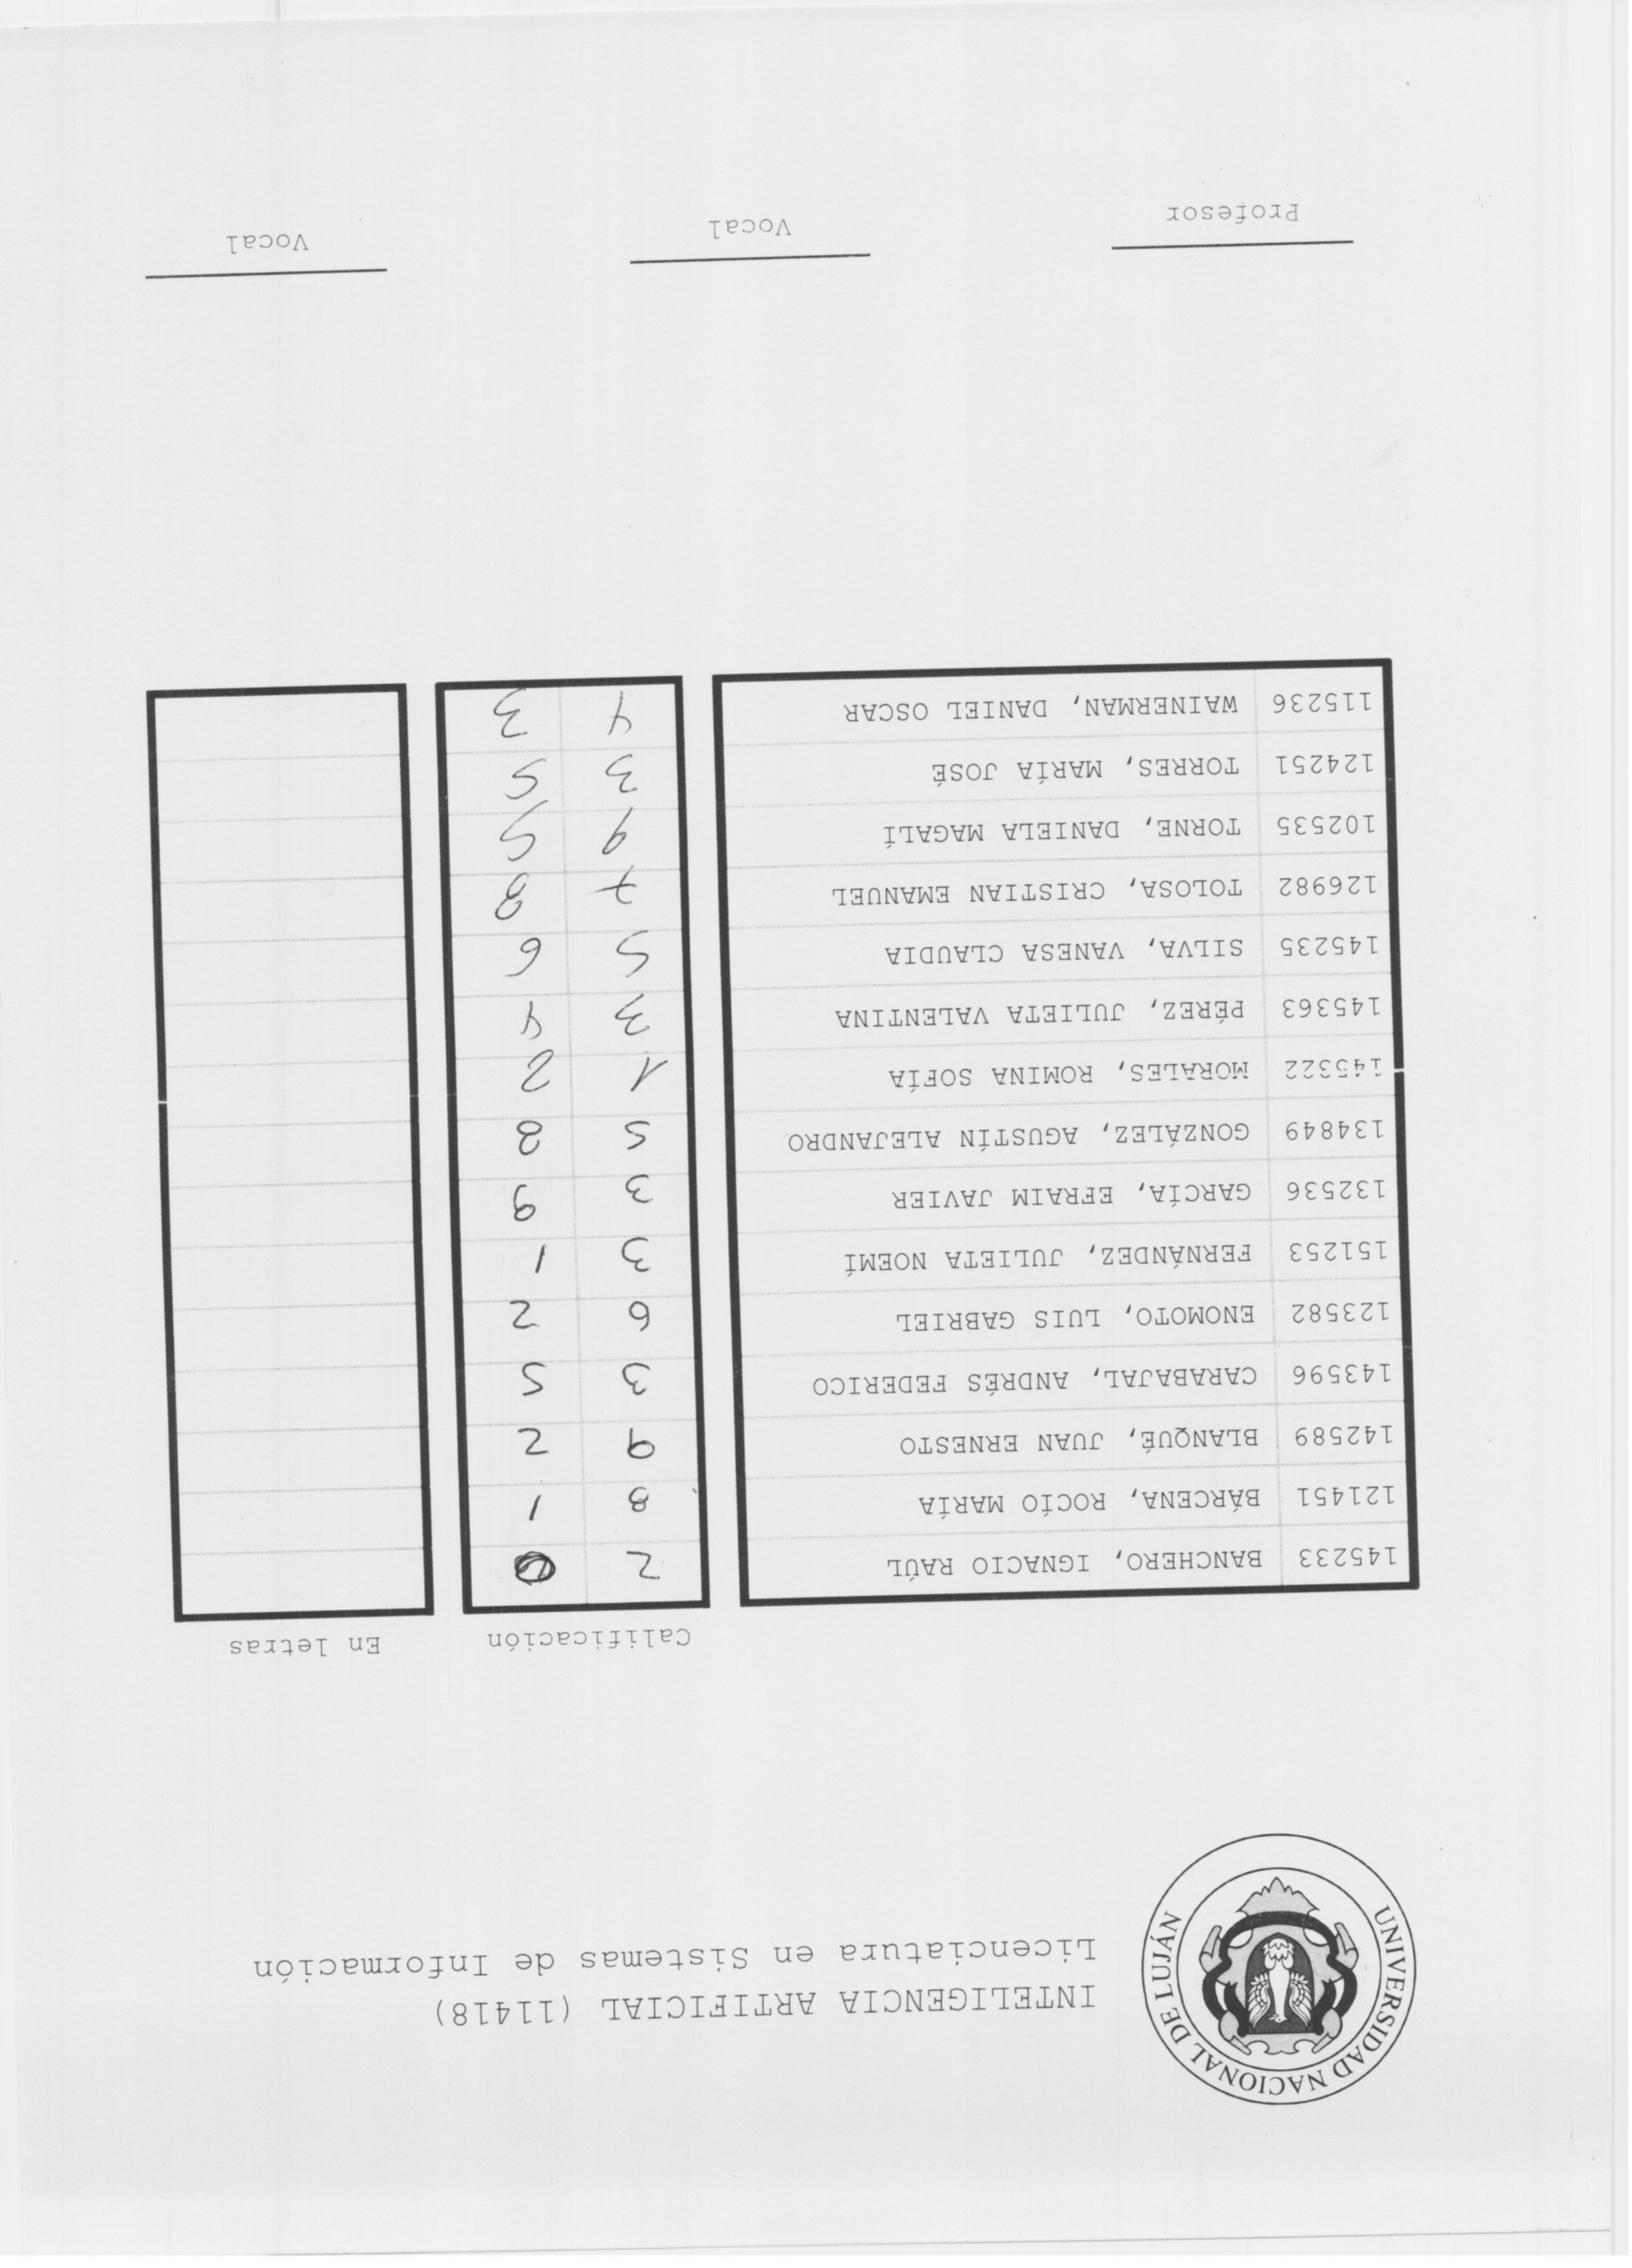 UNIVERSIDAD NACIONAL DE LUJÁN
INTELIGENCIA ARTIFICIAL (11418)
Licenciatura en Sistemas de Información
Calificación En letras
145233 BANCHERO, IGNACIO RAÚL 2
121451 BÁRCENA, ROCÍO MARÍA 8 1
142589 BLANQUÉ, JUAN ERNESTO 9 2
143596 CARABAJAL, ANDRÉS FEDERICO 3 5
123582 ENOMOTO, LUIS GABRIEL 6 2
151253 FERNÁNDEZ, JULIETA NOEMÍ 3 1
132536 GARCÍA, EFRAIM JAVIER 3 9
134849 GONZÁLEZ, AGUSTÍN ALEJANDRO 5 8
145322 MORALES, ROMINA SOFÍA 1 2
145363 PÉREZ, JULIETA VALENTINA 3 4
145235 SILVA, VANESA CLAUDIA 5 6
126982 TOLOSA, CRISTIAN EMANUEL 7 8
102535 TORNE, DANIELA MAGALÍ 9 5
124251 TORRES, MARÍA JOSÉ 3 5
115236 WAINERMAN, DANIEL OSCAR 4 3
Profesor Vocal Vocal